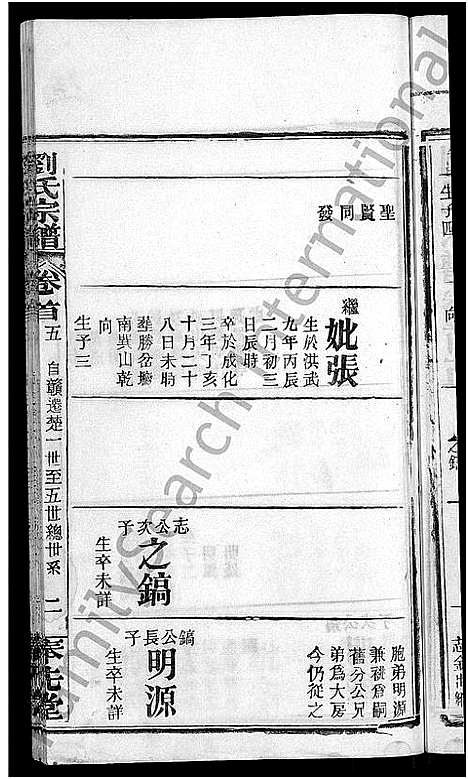 聖賢同發
繼
妣張
生於洪武
九年丙辰
二月初三
日辰時
卒於成化
三年丁亥
十月二十
八日未時
塟勝岔墈
南巽山乾
向
生子三
志公次子
之鎬
生卒未詳
胞弟明源
兼祧為嗣
舊分公兄
弟為大房
今仍從之
鎬公長子
明源
生卒未詳
劉氏宗譜
卷首
五
自贛遷楚一世至五世總世系
二
奉先堂
生子四
之鎬
FamilySearch International